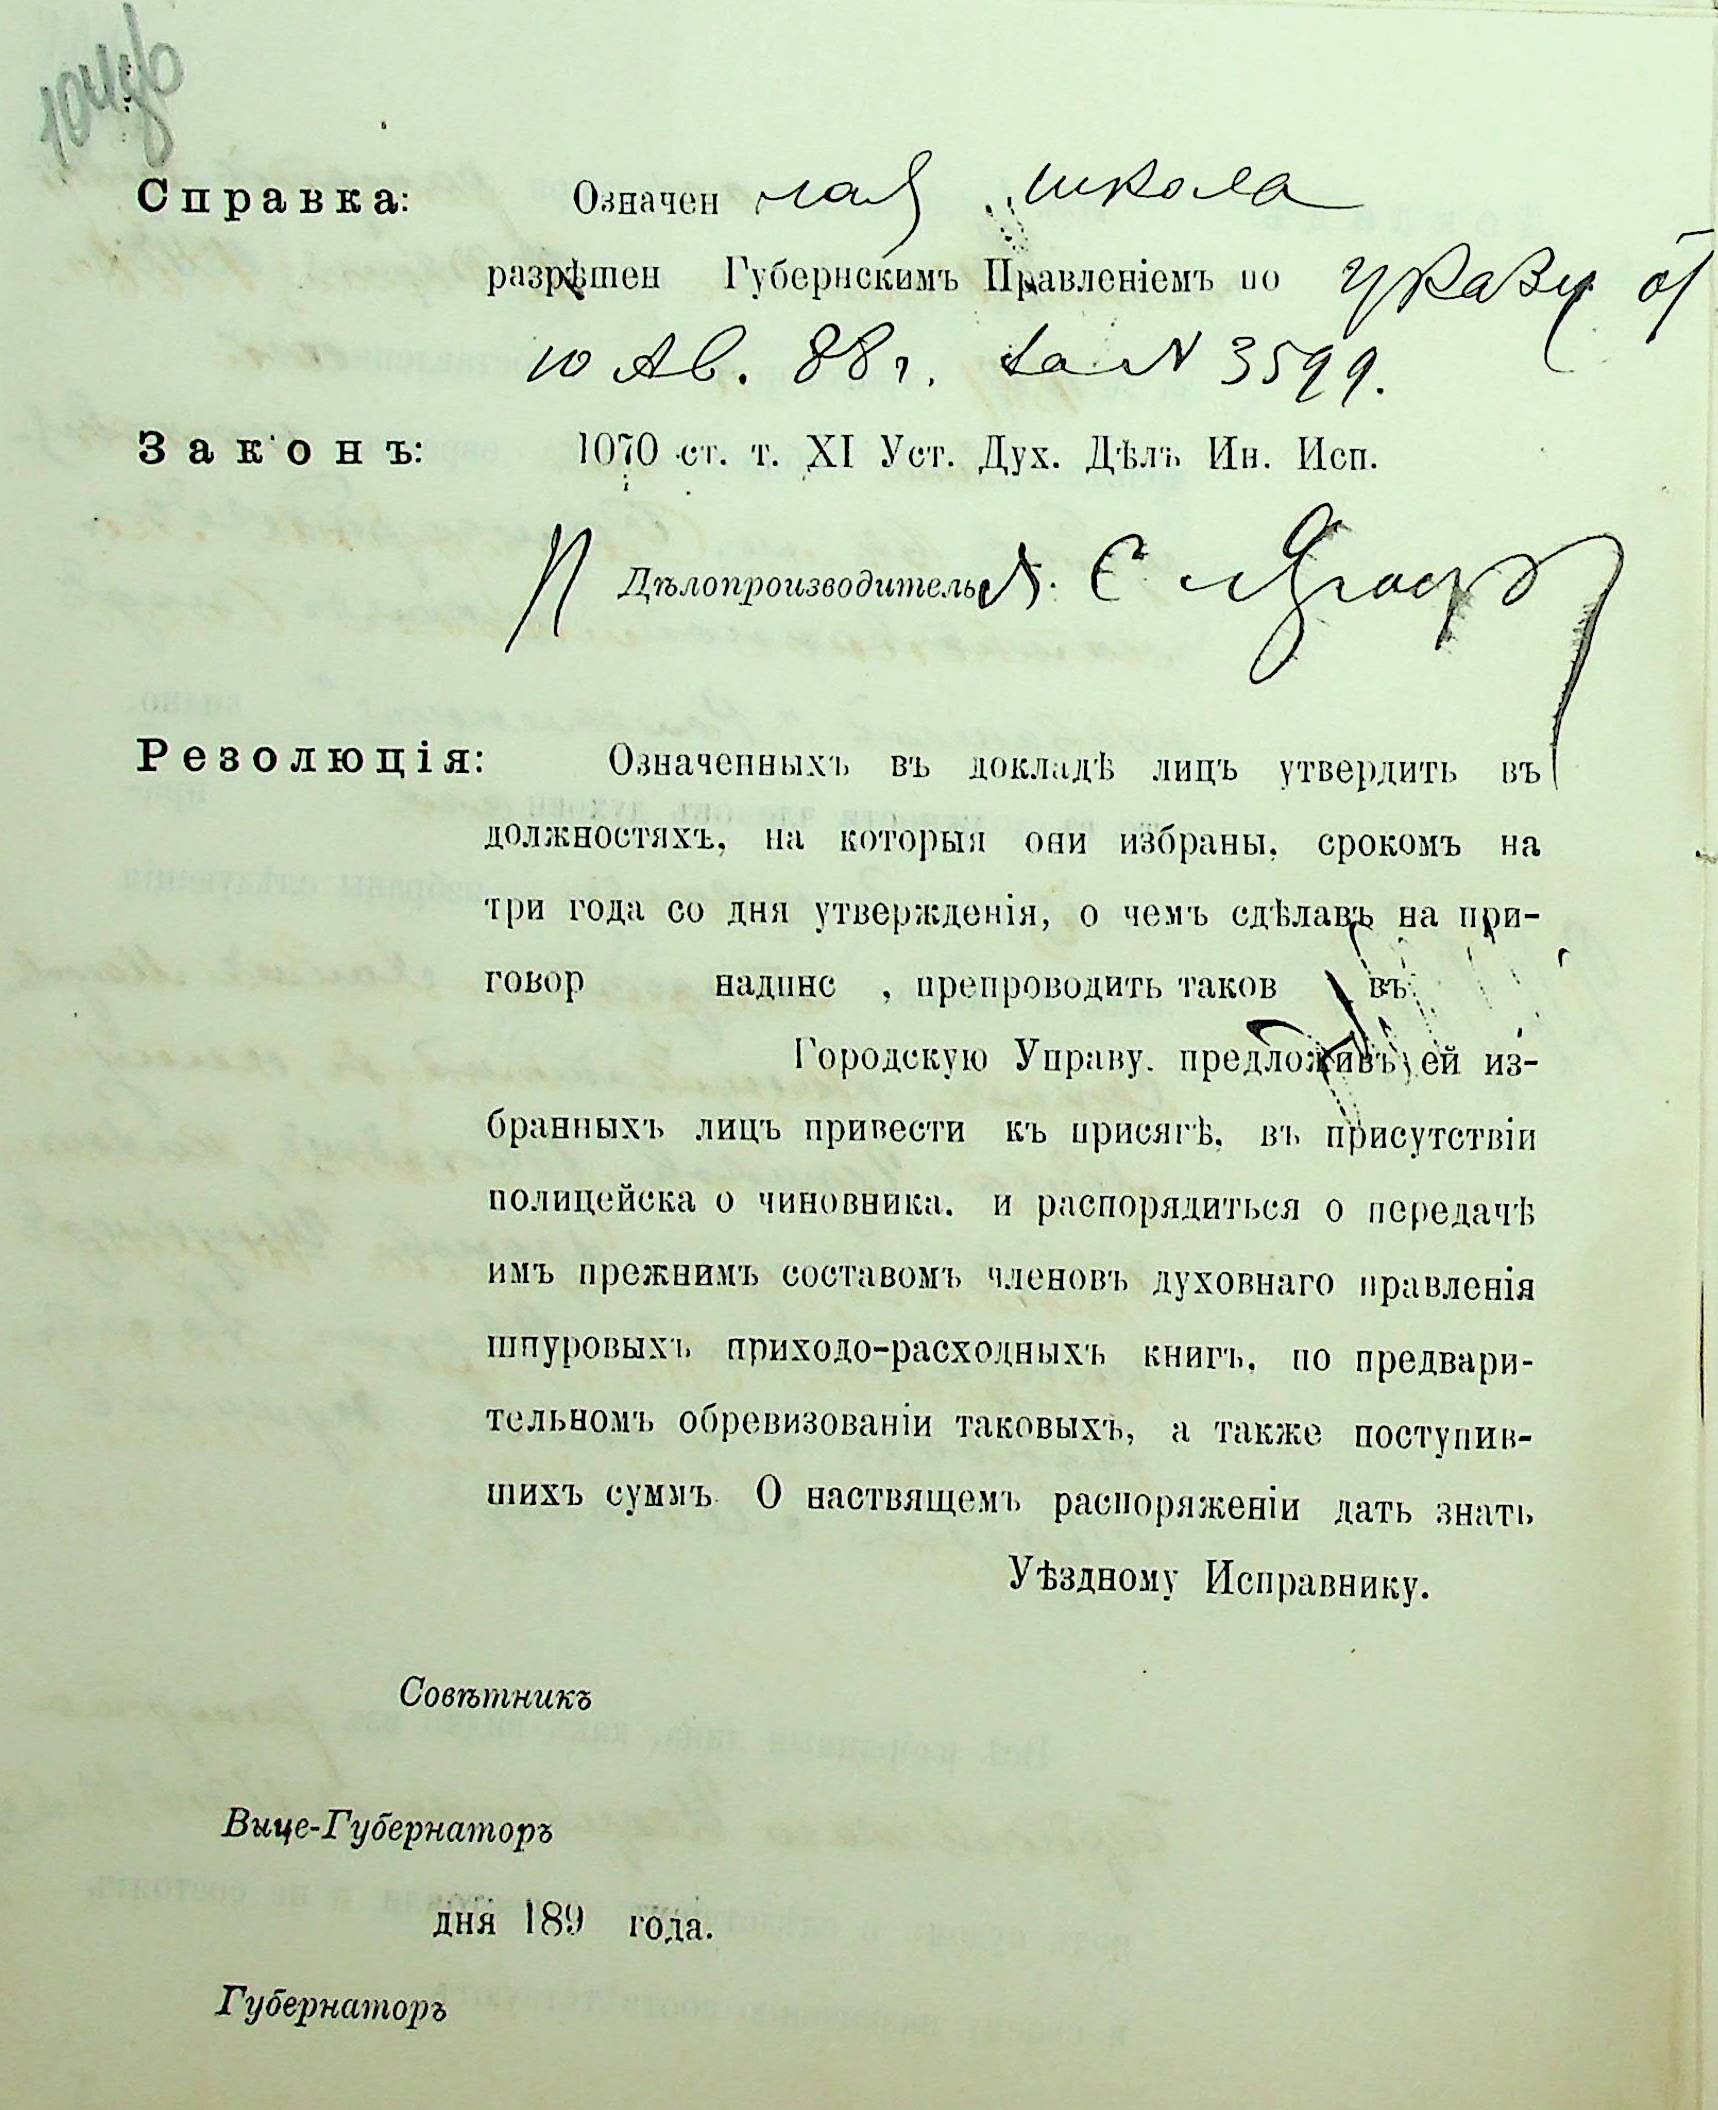 Справка: Означен ная школа
разрѣшен Губернскимъ Правленіемъ по указу от
10 Ав. 88 г. за N 3599.
Законъ: 1070 ст. т. XI Уст. Дух. Дѣлъ Ин. Исп.
Дѣлопроизводитель
Резолюція: Означенныхъ въ докладѣ лицъ утвердить въ
должностяхъ, на которыя они избраны, срокомъ на
три года со дня утвержденія, о чемъ сдѣлавъ на при-
говор надпис , препроводить таков въ
Городскую Управу. предложивъ ей из-
бранныхъ лицъ привести къ присягѣ, въ присутствіи
полицейска о чиновника. и распорядиться о передачѣ
имъ прежнимъ составомъ членовъ духовнаго правленія
шнуровыхъ приходо-расходныхъ книгъ, по предвари-
тельномъ обревизованіи таковыхъ, а также поступив-
шихъ суммъ. О наствящемъ распоряженіи дать знать
Уѣздному Исправнику.
Совѣтникъ
Вице-Губернаторъ
дня 189 года.
Губернаторъ